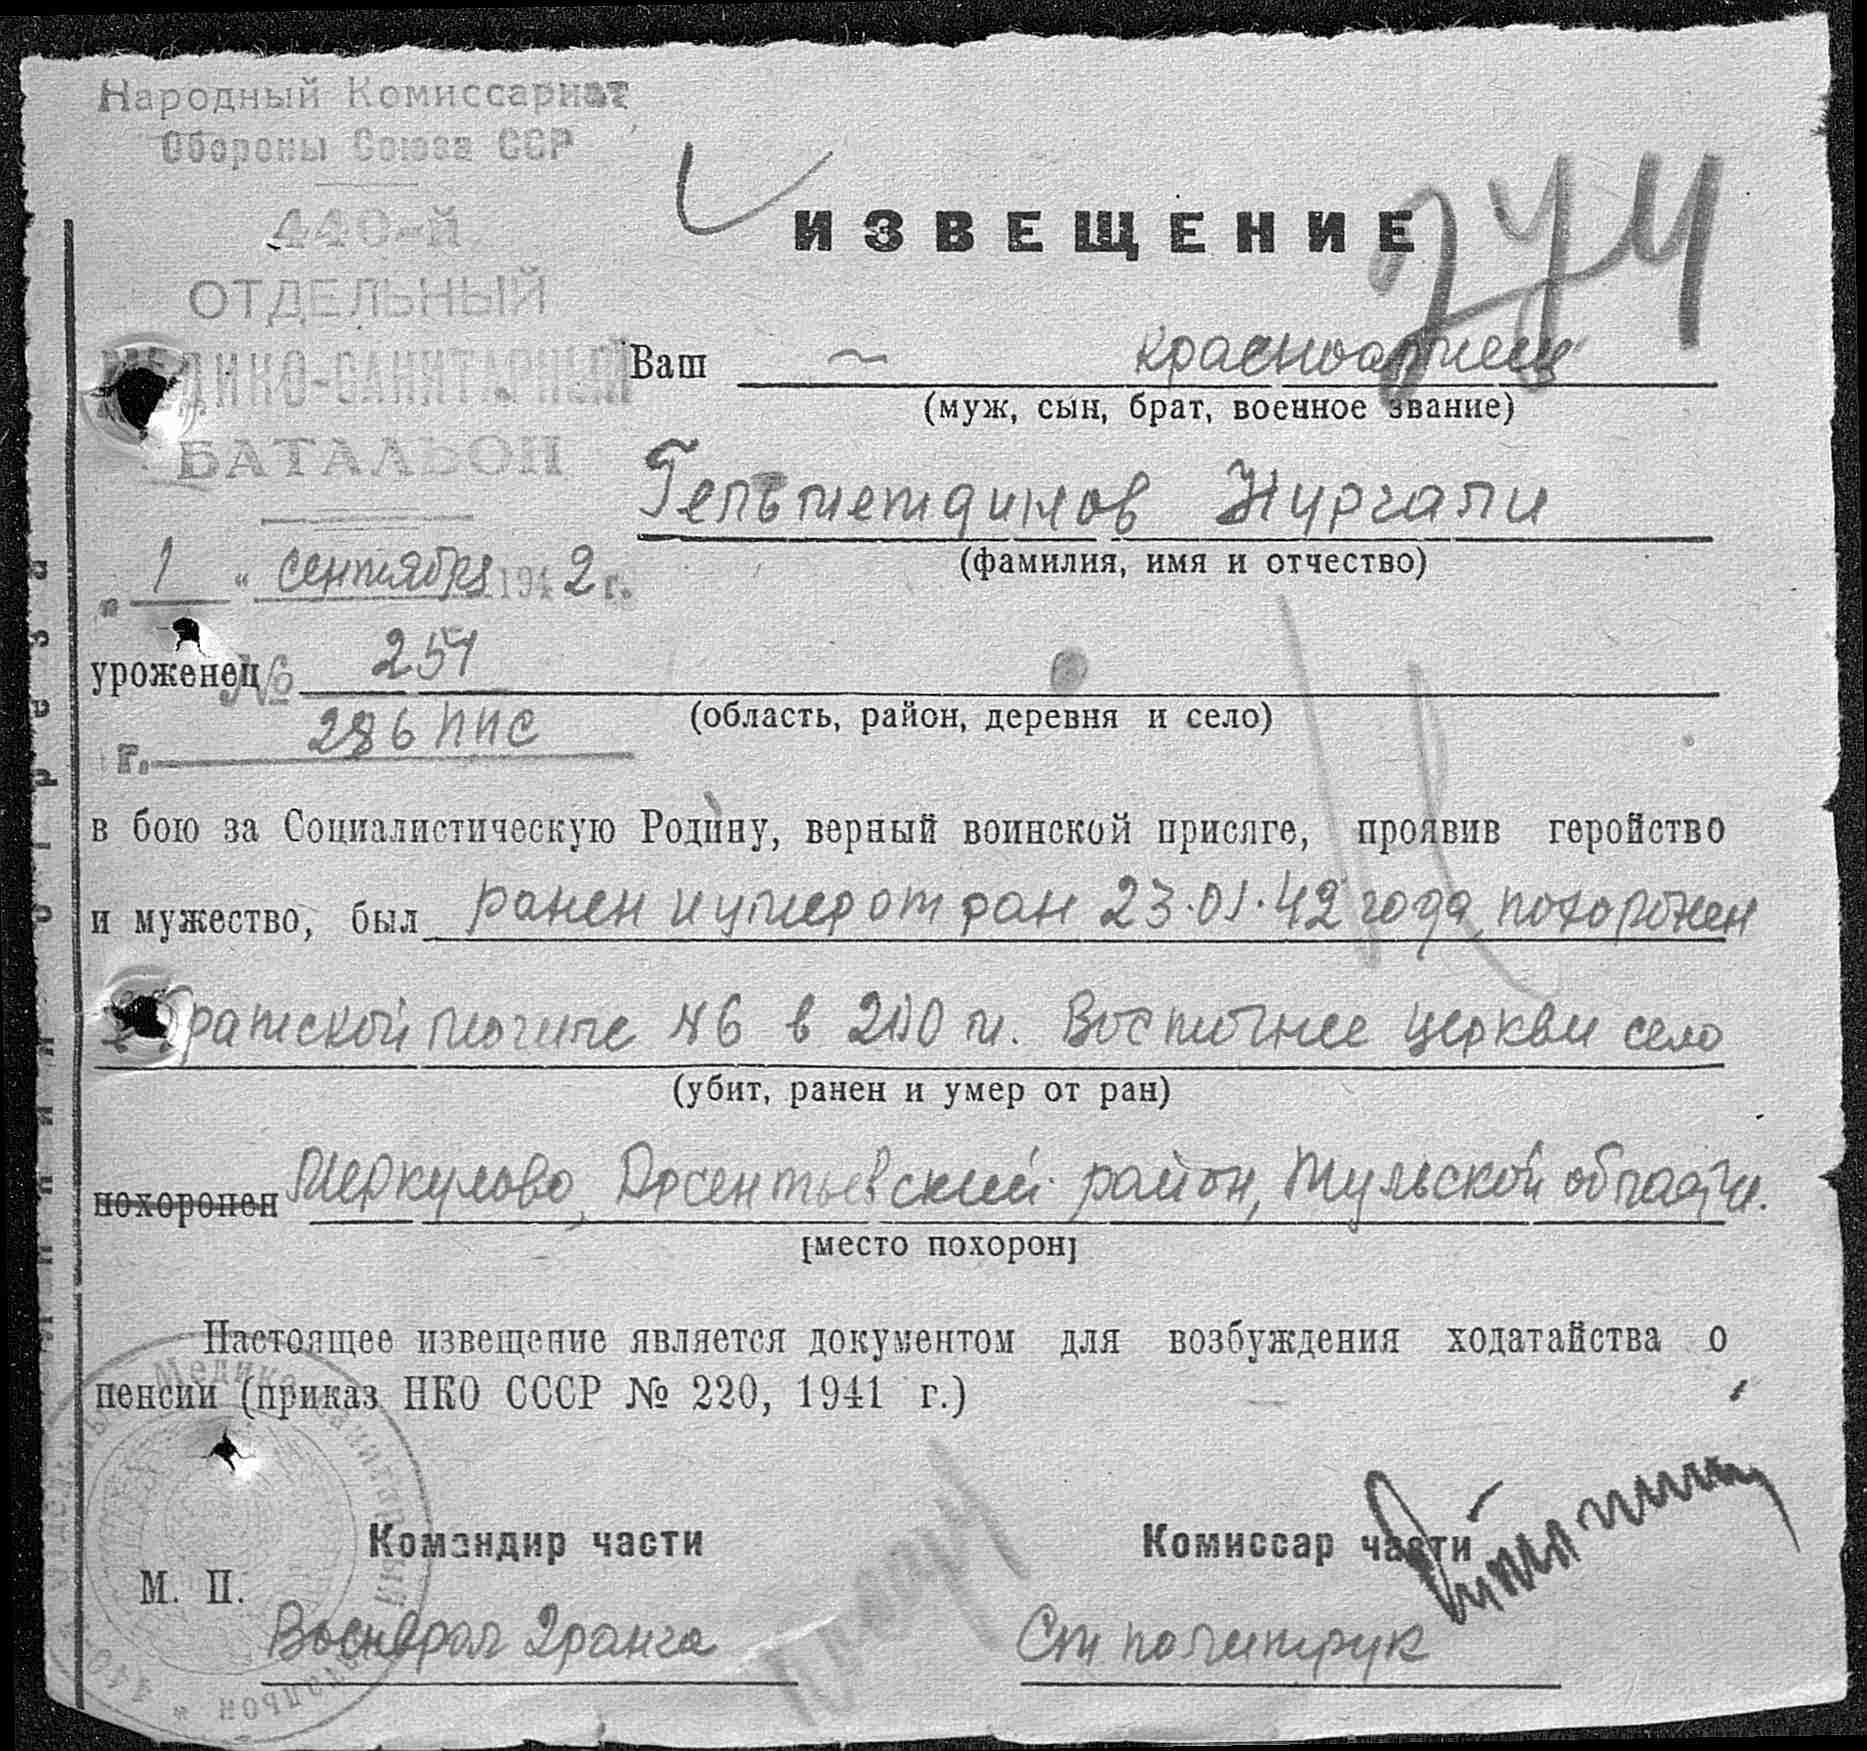 Народный Комиссариат
Обороны Союза ССР
440-й
ОТДЕЛЬНЫЙ
МЕДИКО-САНИТАРНЫЙ
БАТАЛЬОН
„ 1 “ сентября 1942 г.
№ 251
г. 286 ППС
ИЗВЕЩЕНИЕ
Ваш ~ красноармеец
(муж, сын, брат, военное звание)
Гельметдинов Нургали
(фамилия, имя и отчество)
уроженец
(область, район, деревня и село)
в бою за Социалистическую Родину, верный воинской присяге, проявив геройство
и мужество, был ранен и умер от ран 23.01.42 года, похоронен
в братской могиле №6 в 200 м. Восточнее церкви село
(убит, ранен и умер от ран)
похоронен Меркулово, Арсентьевский район, Тульской области.
[место похорон]
Настоящее извещение является документом для возбуждения ходатайства о
пенсии (приказ НКО СССР № 220, 1941 г.)
Командир части
Комиссар части
М. П.
Военврач 2 ранга
Ст политрук